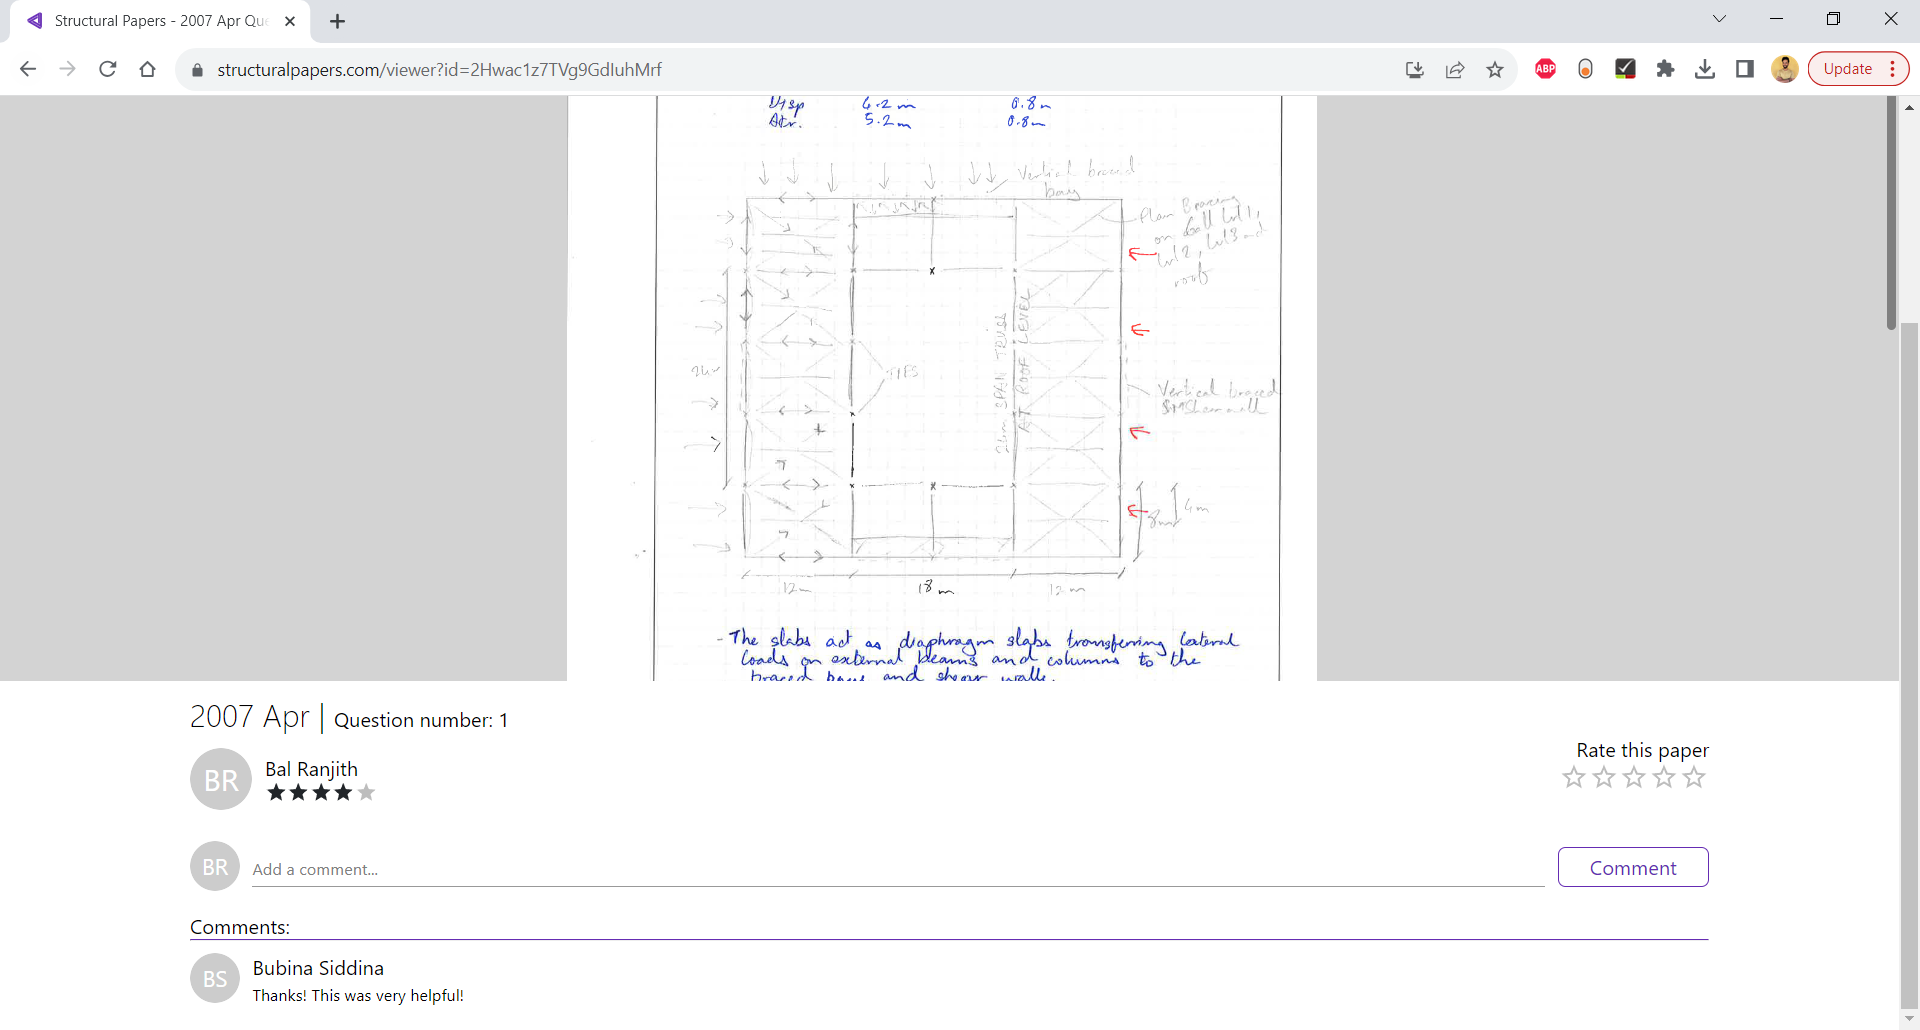 Structural Papers - 2007 Apr Que
structuralpapers.com/viewer?id=2Hwac1z7TVg9GdIuhMrf
ABP
Update
Disp 6.2 m 0.8m
Atr. 5.2m 0.8m
Vertical braced
bay
Plan Bracing
on all lvl 1,
lvl 2, lvl 3 and
roof
24m
TIES
24m SPAN TRUSS
AT ROOF LEVEL
Vertical braced
Shearwall
8m
4m
12m
18 m
12 m
- The slabs act as diaphragm slabs transferring lateral
loads on external beams and columns to the
braced bays and shear walls.
2007 Apr | Question number: 1
BR
Bal Ranjith
Rate this paper
BR
Add a comment...
Comment
Comments:
BS
Bubina Siddina
Thanks! This was very helpful!